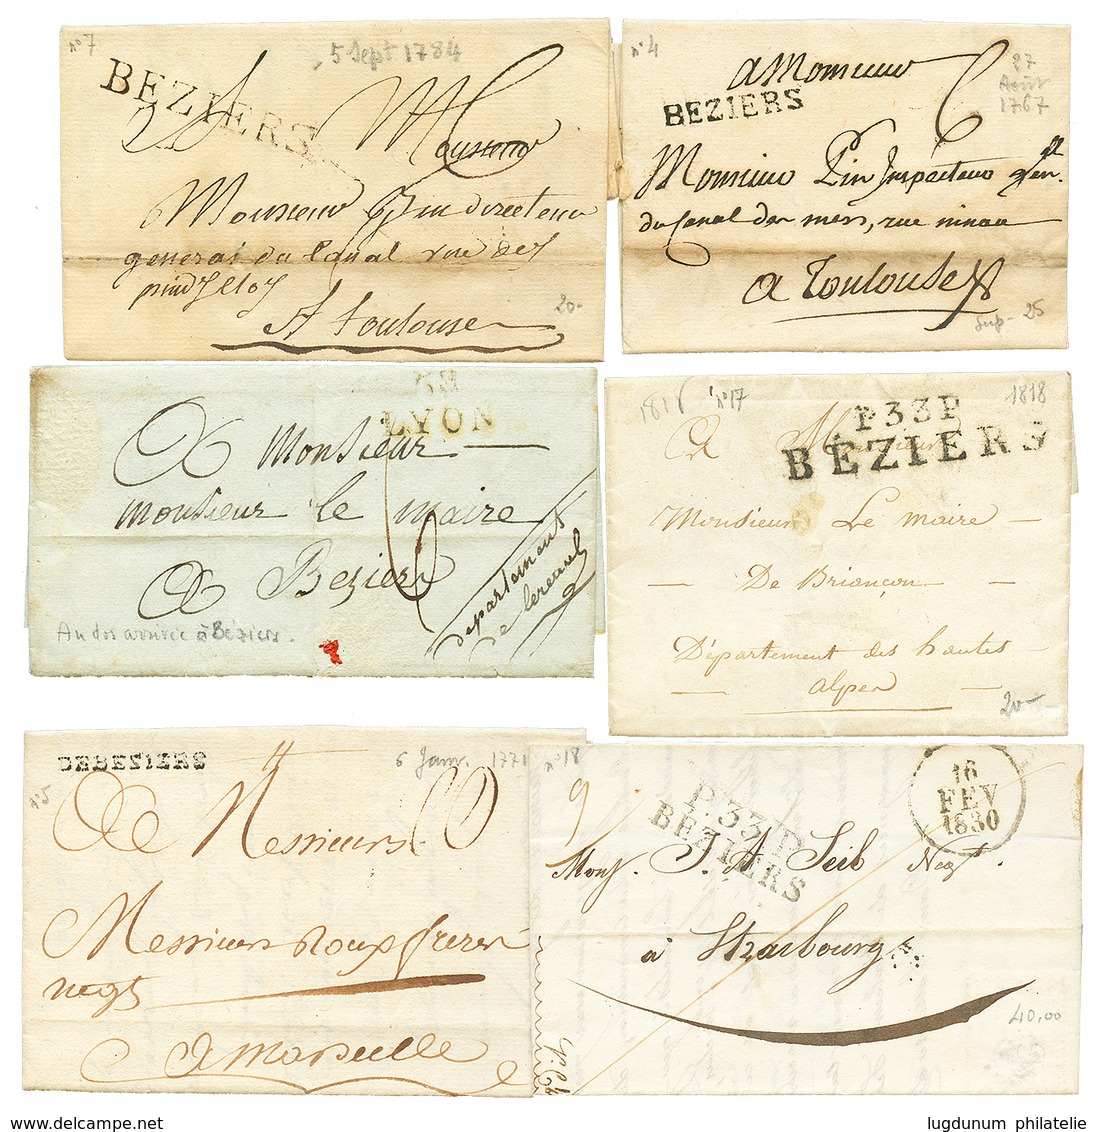 n°7
5 Sept 1784
BEZIERS
A Monsieur
Monsieur Pin directeur
general du Canal rue des
A Toulouse
20-
n°4
a Monsieur
27
Août
1767
BEZIERS
Monsieur Pin Inspecteur gen.al
du Canal des mers, rue ninau
a Toulouse
Sup - 25
68
LYON
A Monsieur
monsieur le maire
A Beziers
6
departement
de lereault
Au dos arrivée à Béziers.
1816
n°17
1818
P33P
BEZIERS
A Monsieur
Monsieur Le maire
De Briançon
Département des hautes
alpes
20-
DEBEZIERS
6 Janv. 1771
n°5
A Messieurs
Messieurs Roux freres
negts
A Marseille
n°18
9
P.33.P
BEZIERS
16
FEV
1830
Monsr. J. A. Seib Negt.
à Strasbourg
40,00
www.delcampe.net
lugdunum philatelie